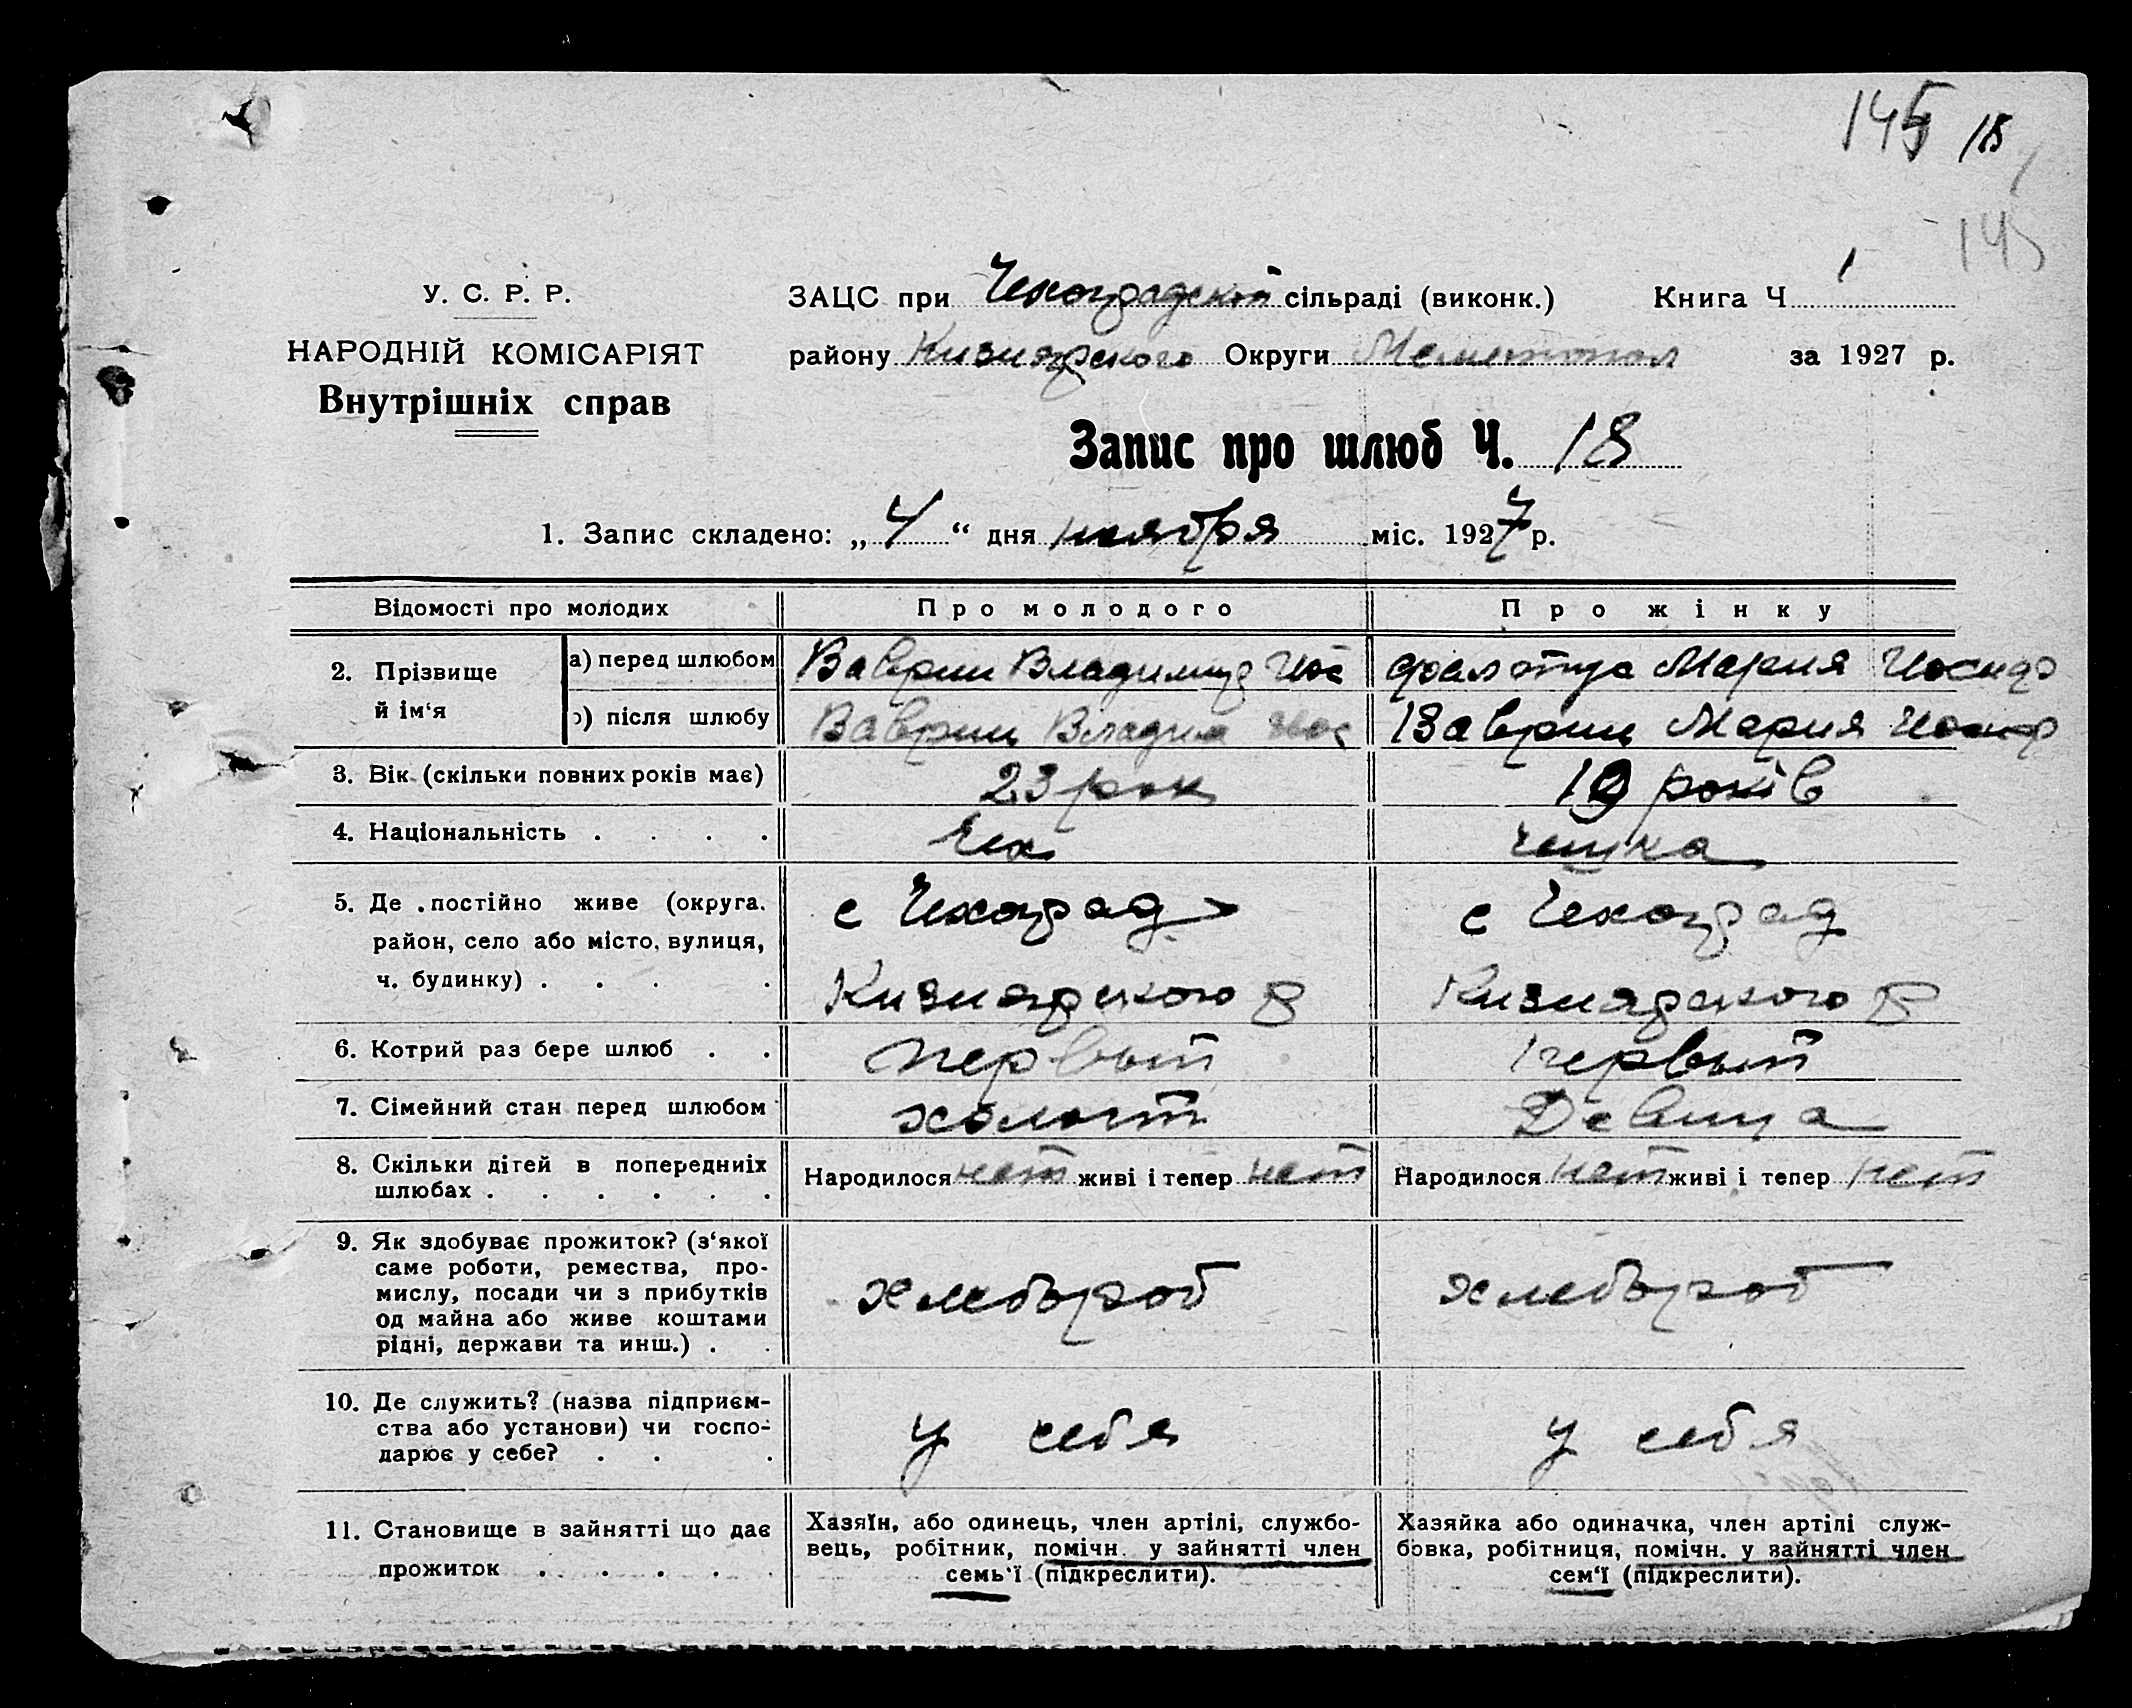 145 18
145
У. С. Р. Р.
НАРОДНІЙ КОМІСАРІЯТ
Внутрішніх справ
ЗАЦС при Чехоградской сільраді (виконк.) Книга Ч 1
району Кизиярского Округи Мелитопол за 1927 р.
Запис про шлюб Ч. 18
1. Запис складено: „ 4 “ дня ноября міс. 1927 р.
Відомості про молодих Про молодого Про жінку
2. Прізвище й ім‘я
а) перед шлюбом Ваврин Владимир Иос Мария Иосиф
б) після шлюбу Ваврин Владим Иос Ваврин Мария Иосиф
3. Вік (скільки повних років має) 23 рок 19 років
4. Національність . . . . Чех чешка
5. Де постійно живе (округа, с Чехоград с Чехоград
район, село або місто, вулиця,
ч. будинку) . . . . Кизиярского р Кизиярского р
6. Котрий раз бере шлюб . . первый первый
7. Сімейний стан перед шлюбом холост Девица
8. Скільки дітей в попередниіх
шлюбах . . . . . . Народилося нет живі і тепер нет Народилося нет живі і тепер нет
9. Як здобуває прожиток? (з‘якої
саме роботи, ремества, про-
мислу, посади чи з прибутків хлебороб хлебороб
од майна або живе коштами
рідні, держави та инш.) . .
10. Де служить? (назва підприєм-
ства або установи) чи госпо- у себя у себя
дарює у себе? . . .
11. Становище в зайнятті що дає
прожиток . . . . .
Хазяїн, або одинець, член артілі, службо-
вець, робітник, помічн. у зайнятті член
семь‘ї (підкреслити).
Хазяйка або одиначка, член артілі служ-
бовка, робітниця, помічн. у зайнятті член
сем‘ї (підкреслити).